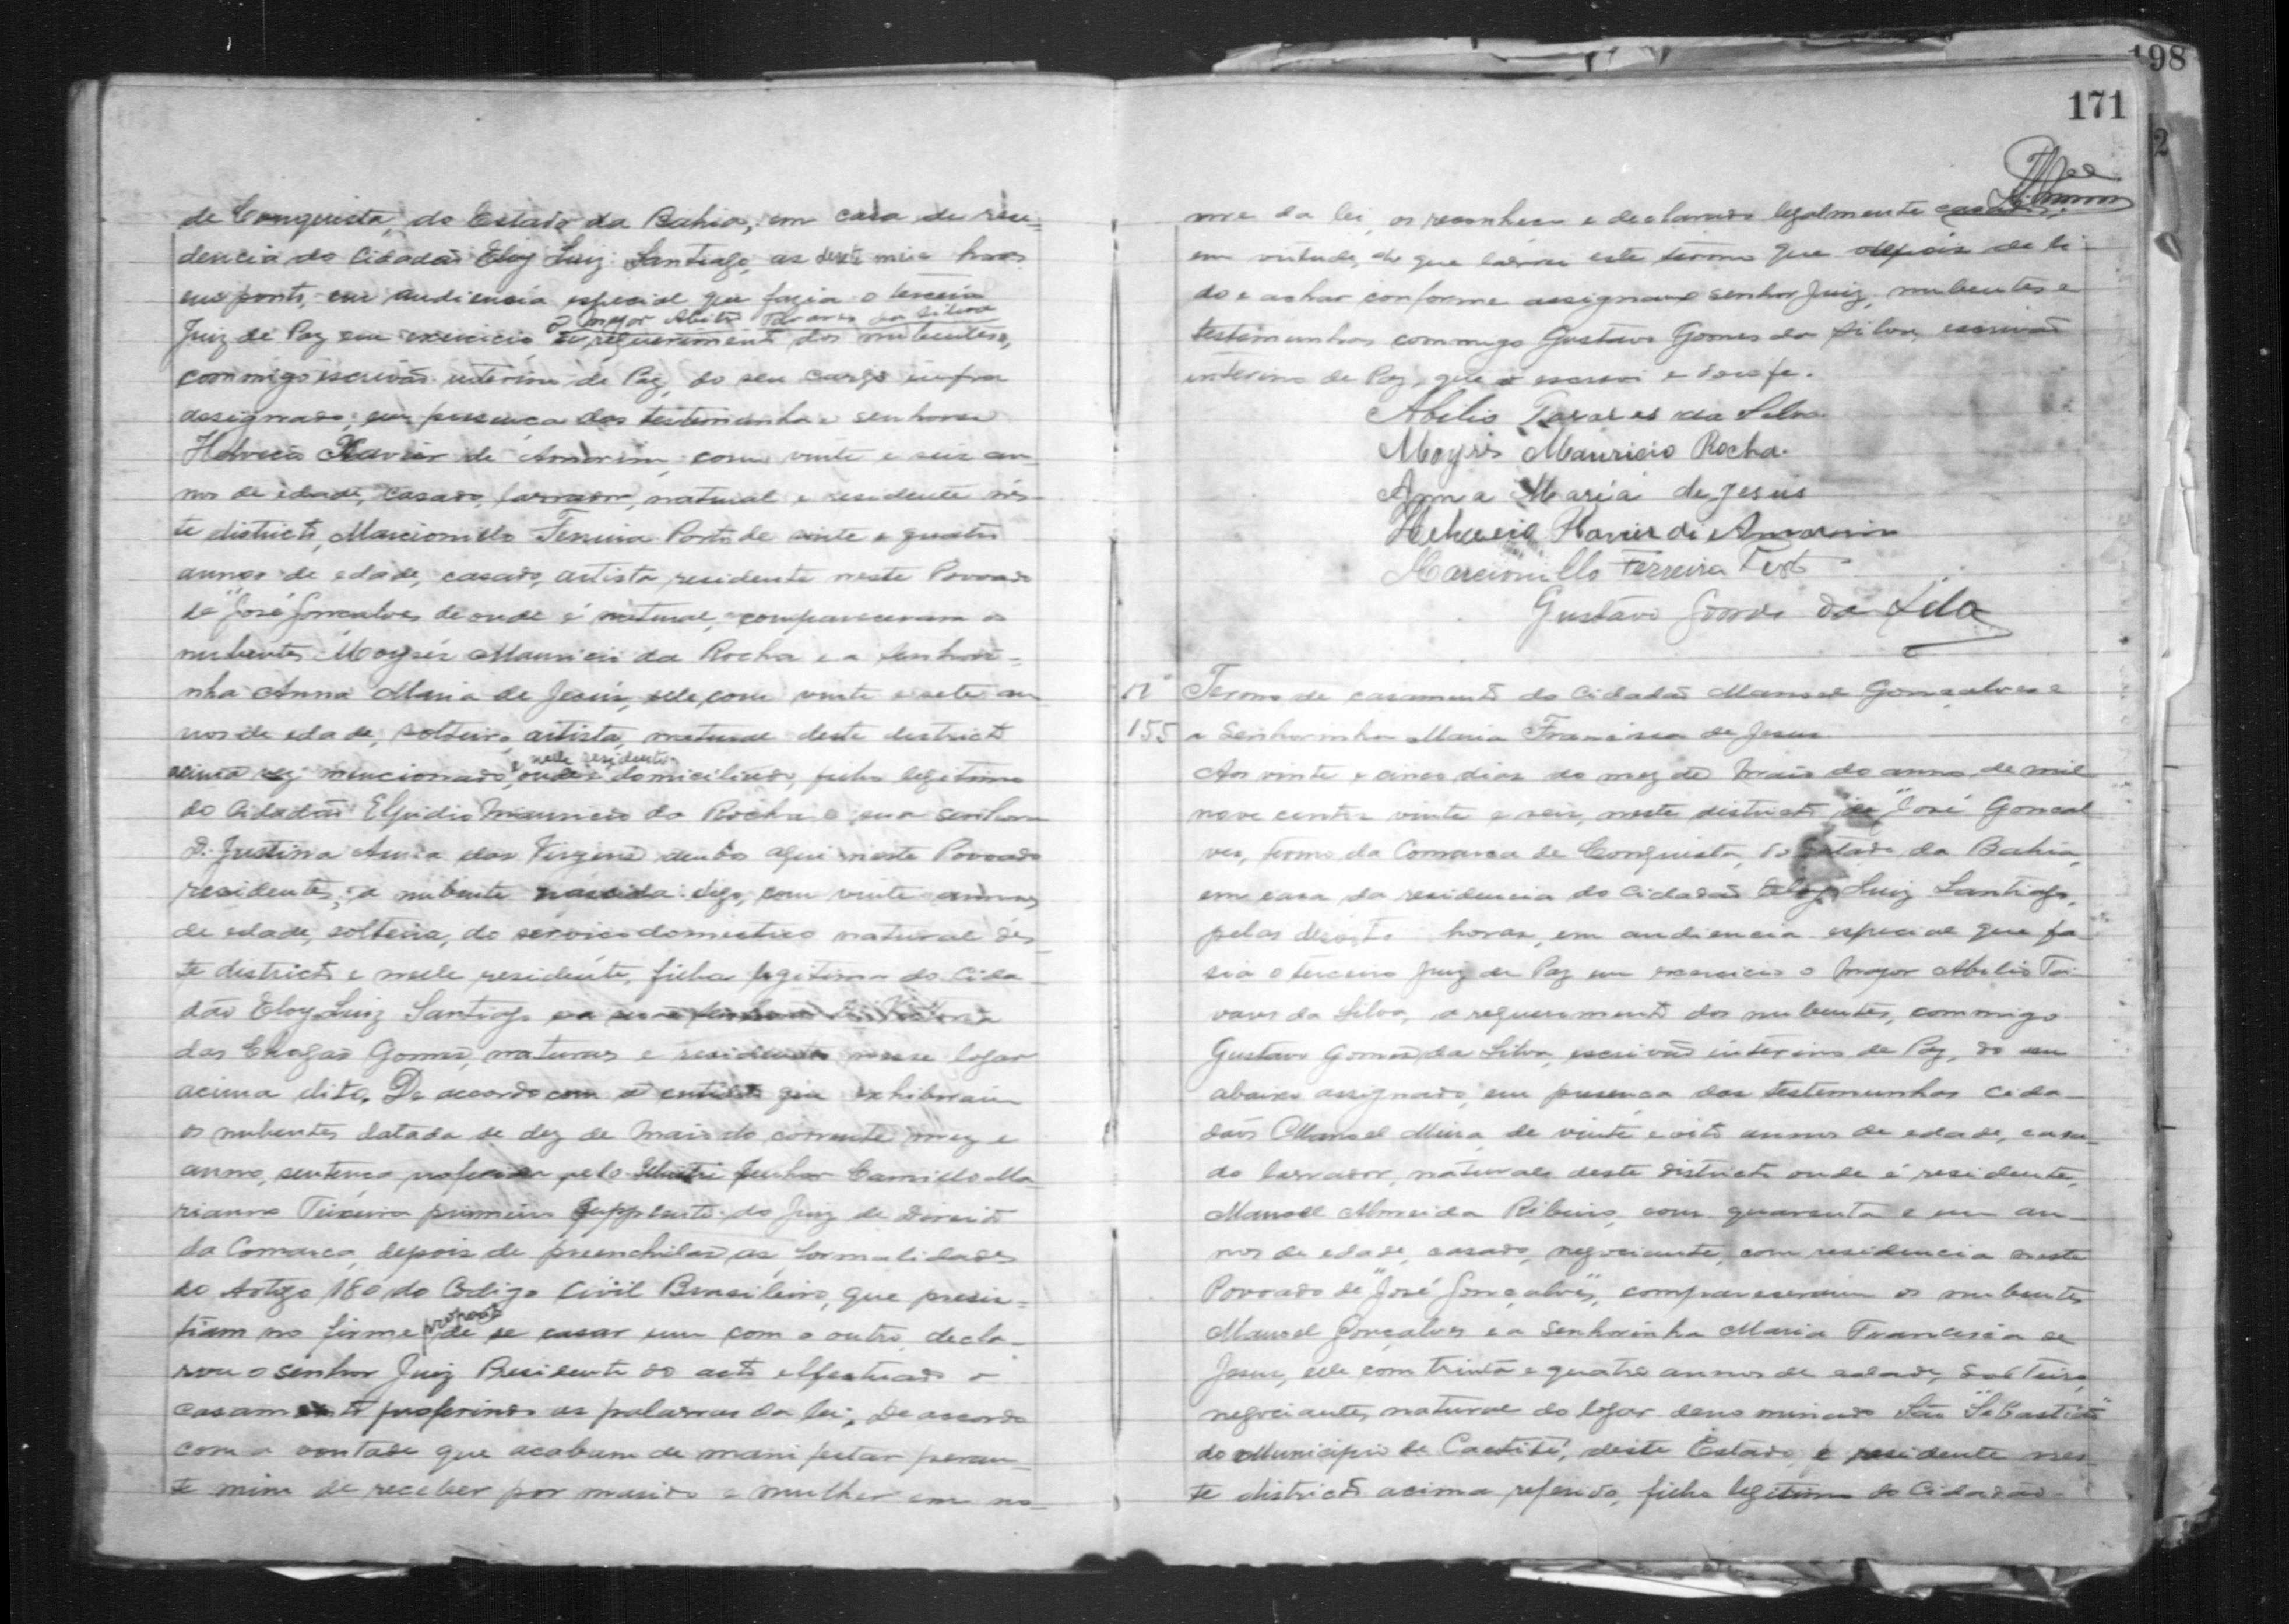 de Conquista, do Estado da Bahia, em casa de resi=
dencia do Cidadão Eloy Luiz Santiago, as desete meia horas
em ponto, em audiencia especial que fazia o terceiro
o major Abilio Tavares da Silva
Juiz de Paz em exercicio a requerimento dos nubentes,
commigo escrivão interino de Paz, do seu cargo infra
assignado, em presença das testimunhas senhores
Helvecio Xavier de Amorim, com vinte e seis an-
nos de idade, casado, lavrador, natural e residente nes-
te districto, Marcionillo Ferreira Porto de vinte e quatro
annos de edade, casado, artista, residente neste Povoado
de "José Gonçalves de onde é natural, compareceram os
nubentes Moysés Mauricio da Rocha e a senhori=
nha Anna Maria de Jesus, elle com vinte e sete an
nos de edade, solteiro, artista, natural deste districto
e nelle residente
acima mencionado, domiciliado, filho legitimo
do Cidadão Elpidio Mauricio da Rocha e sua senhora
D. Justina Anna das Virgens aqui neste Povoado
residentes; a nubente nascida digo, com vinte annos
de edade, solteira, do serviço domestico natural des-
te districto e nelle residente, filha legitima do Cida-
dão Eloy Luiz Santiago e a sua senhora D. Victoria
das Chagas Gomes, naturaes e residentes nesse logar
acima dito. De accordo com a certidão que exhibiram
os nubentes datada de dez de Maio do corrente mez e
anno, sentença proferida pelo Illustre Senhor Camillo Ma-
rianno Teixeira primeiro Supplente do Juiz de Direito
da Comarca, depois de preenchidas as formalidades
do Artigo 180 do Codigo Civil Brasileiro, que persis=
proposito
tiam no firme de se casar um com o outro, decla-
rou o senhor Juiz Presidente do acto effectuado o
casamento proferindo as palavras da lei, De accordo
com a vontade que acabam de manifestar peran-
te mim de receber por marido e mulher em no-
98
171
2
me da lei, os reconheço e declarado legalmente casados,
em virtude, do que lavrei este termo que depois de li-
do e achar conforme assigna o senhor Juiz, nubentes e
testemunhas commigo Gustavo Gomes da Silva, escrivão
interino de Paz, que o escrevi e dou fe.
Abilio Tavares da Silva
Moysés Mauricio Rocha.
Anna Maria de Jesus
Helvecio Xavier di Amorim
Marcionillo Ferreira Porto
Gustavo Gomes da Silva
N°
Termo de casamento do Cidadão Manoel Gonçalves e
155
a Senhorinha Maria Francisca de Jesus
Aos vinte e cinco dias do mez de Maio do anno de mil
nove centos vinte e seis, neste districto de "José Gonçal
ves, termo da Comarca de Conquista, do Estado da Bahia,
em casa da residencia do Cidadão Eloy Luiz Santiago,
pelas desoito horas, em audiencia especial que fa-
sia o terceiro Juiz de Paz em exercicio o Major Abilio Ta-
vares da Silva, a requerimento dos nubentes, commigo
Gustavo Gomes da Silva, escrivão interino de Paz, do seu
abaixo assignado, em presença das testemunhas cida-
dãos Manoel Meira de vinte e oito annos de edade, casa-
do lavrador, natural deste districto onde é residente,
Manoel Almeida Ribeiro, com quarenta e um an-
nos de edade, casado, negociante, com residencia neste
Povoado de "José Gonçalves", compareceram os nubentes
Manoel Gonçalves e a Senhorinha Maria Francisca de
Jesus, elle com trinta e quatro annos de edade, solteiro,
negociante, natural do logar denominado São "Sebastião"
do Municipio de Caetité, deste Estado, e residente nes-
te districto acima referido, filho legitimo do Cidadão